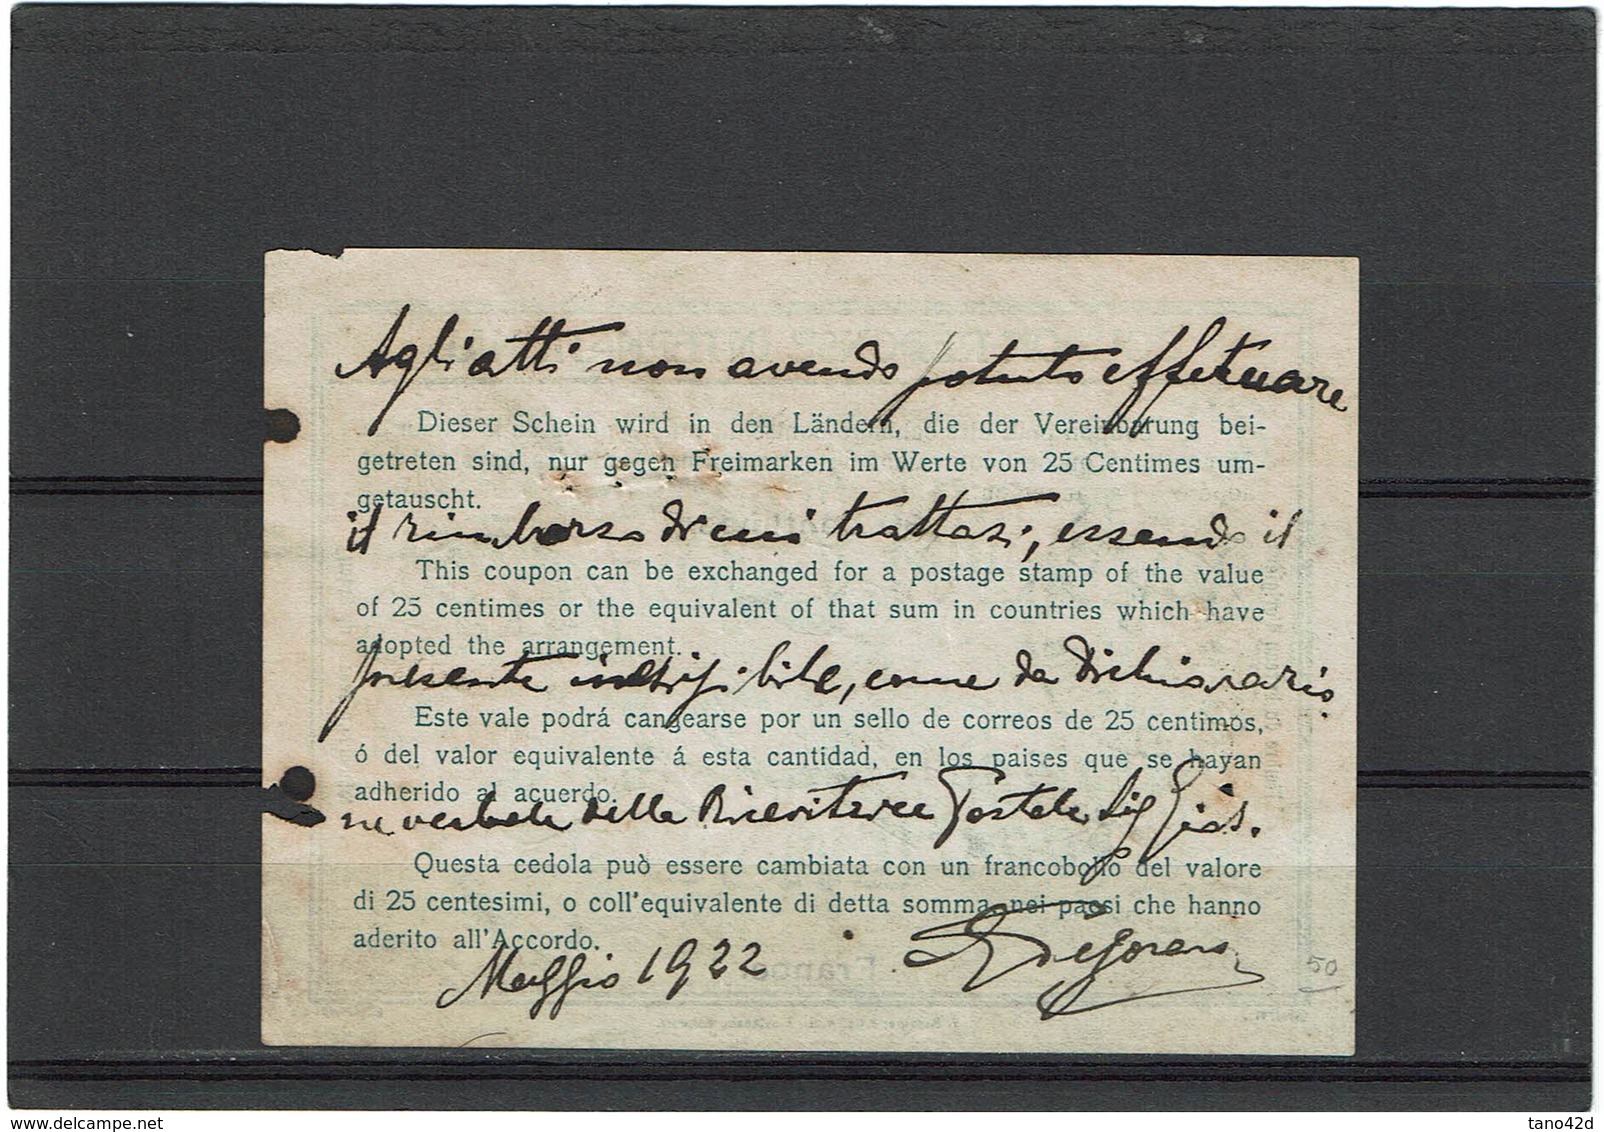 Agli atti non avendo potuto effettuare
Dieser Schein wird in den Ländern, die der Vereinbarung bei-
getreten sind, nur gegen Freimarken im Werte von 25 Centimes um-
getauscht.
il rimborso di cui trattasi, essendo il
This coupon can be exchanged for a postage stamp of the value
of 25 centimes or the equivalent of that sum in countries which have
adopted the arrangement.
presente, come da dichiarazio
Este vale podrá cangearse por un sello de correos de 25 centimos,
ó del valor equivalente á esta cantidad, en los paises que se hayan
adherido al acuerdo.
ne verbale della Ricevitrice Postale Sig
Questa cedola può essere cambiata con un francobollo del valore
di 25 centesimi, o coll'equivalente di detta somma nei paesi che hanno
aderito all'Accordo.
Maggio 1922
50
delcampe.net
tano42d